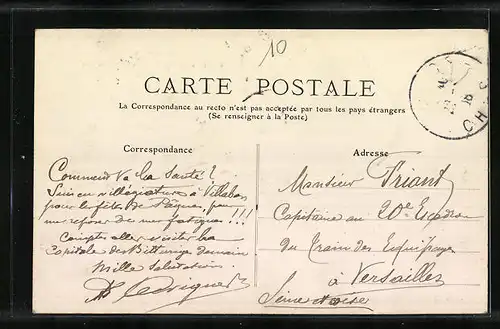 10
CARTE POSTALE
La Correspondance au recto n'est pas acceptée par tous les pays étrangers
(Se renseigner à la Poste)
Correspondance
Comment va la Santé ?
Suis en villégiature à Villebon
pour les fêtes de Pâques, pour
me reposer de mes fatigues !!!
Comptes aller visiter la
Capitale des Bituriges demain
Mille
Adresse
Monsieur Triant
Capitaine au 20e Escadron
du Train des Equipages
à Versailles
Seine et Oise